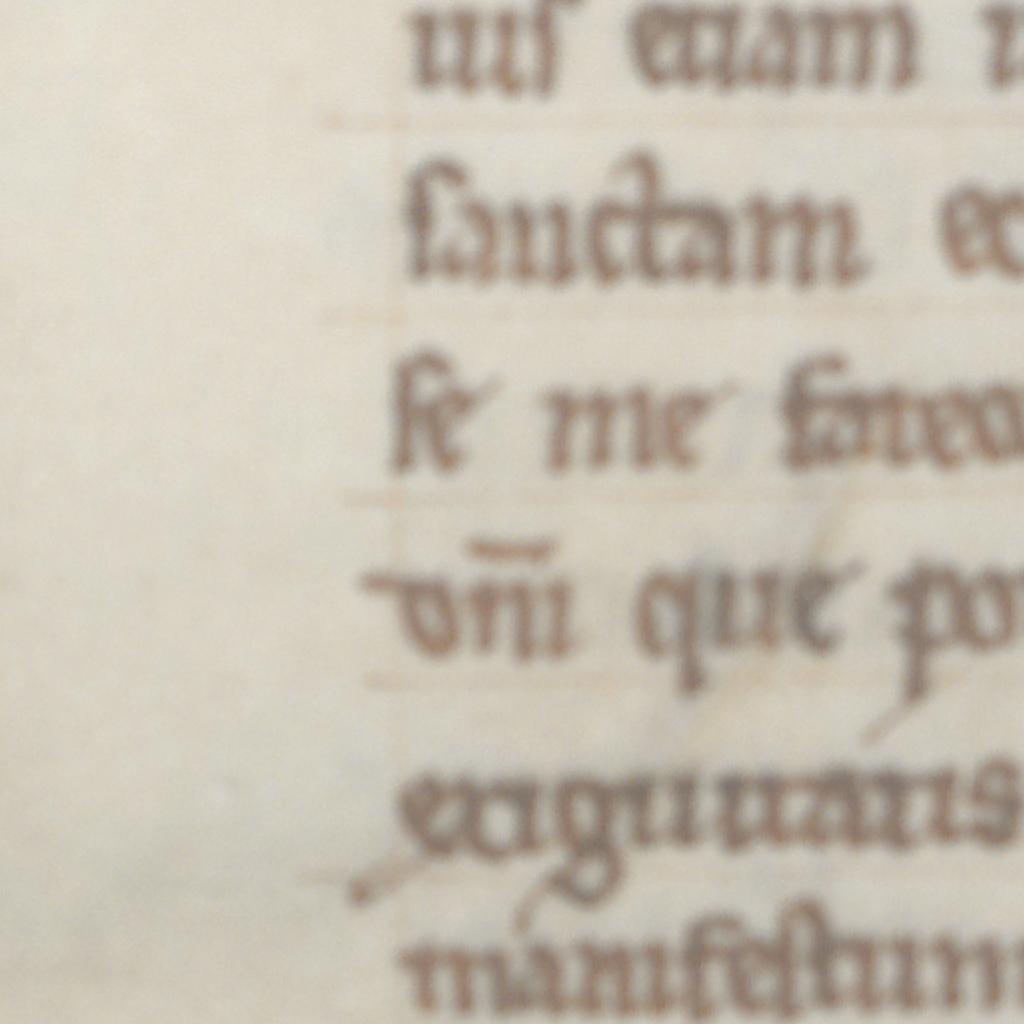 iuſ etiam
ſanctam ec
ſe me fatea
om̅i que po
exiguitatis
manifeſtum